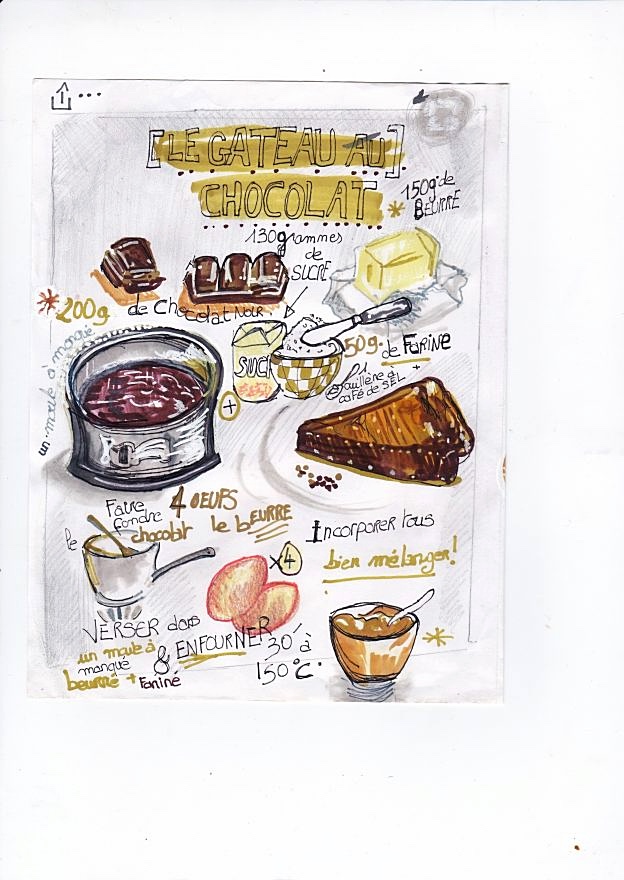 [LE GATEAU AU]
CHOCOLAT
150g de
BEURRE
130grammes
de
SUCRE
200g de Chocolat Noir
un moule à manqué
SUCR
50g de FARINE
+
1 cuillère à
café de SEL
+
Faire
fondre
le chocolat le bEURRE
4 OEUFS
x4
Incorporer tous
bien mélanger!
VERSER dans
un moule à
manqué
beurré + Fariné
& ENFOURNER 30' à
150°C.